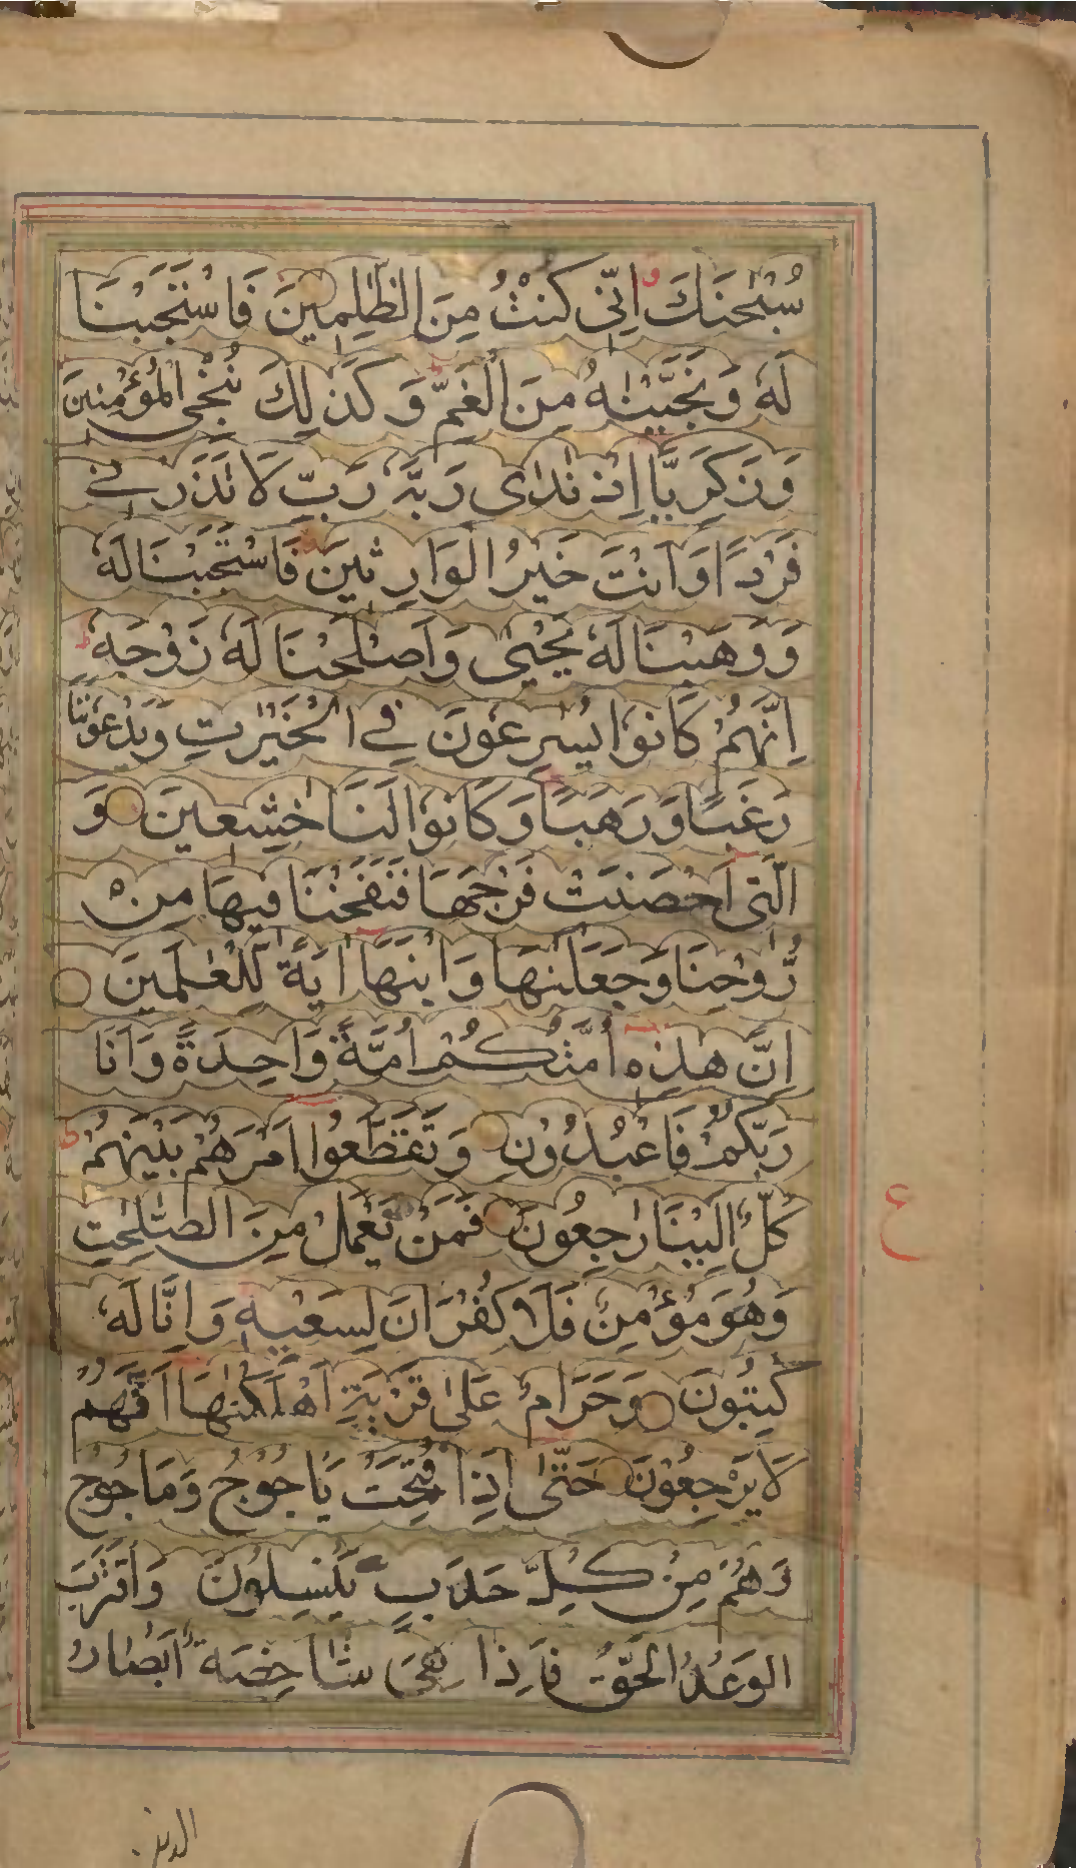 سُبْحٰنَكَ اِنِّىْ كُنْتُ مِنَ الظّٰلِمِيْنَ فَاسْتَجَبْنَا
لَهٗ وَنَجَّيْنٰهُ مِنَ الْغَمِّ وَكَذٰلِكَ نُـْۨجِى الْمُؤْمِنِيْنَ
وَزَكَرِيَّا اِذْ نَادٰى رَبَّهٗ رَبِّ لَا تَذَرْنِىْ
فَرْدًا وَّاَنْتَ خَيْرُ الْوَارِثِيْنَ فَاسْتَجَبْنَا لَهٗ
وَوَهَبْنَا لَهٗ يَحْيٰى وَاَصْلَحْنَا لَهٗ زَوْجَهٗ
اِنَّهُمْ كَانُوْا يُسٰرِعُوْنَ فِى الْخَيْرٰتِ وَيَدْعُوْنَنَا
رَغَبًا وَّرَهَبًا وَكَانُوْا لَنَا خٰشِعِيْنَ وَ
الَّتِىْ اَحْصَنَتْ فَرْجَهَا فَنَفَخْنَا فِيْهَا مِنْ
رُّوْحِنَا وَجَعَلْنٰهَا وَابْنَهَا اٰيَةً لِّلْعٰلَمِيْنَ
اِنَّ هٰذِهٖ اُمَّتُكُمْ اُمَّةً وَّاحِدَةً وَّاَنَا
رَبُّكُمْ فَاعْبُدُوْنِ وَتَقَطَّعُوْا اَمْرَهُمْ بَيْنَهُمْ
كُلٌّ اِلَيْنَا رٰجِعُوْنَ فَمَنْ يَّعْمَلْ مِنَ الصّٰلِحٰتِ
وَهُوَ مُؤْمِنٌ فَلَا كُفْرَانَ لِسَعْيِهٖ وَاِنَّا لَهٗ
كٰتِبُوْنَ وَحَرَامٌ عَلٰى قَرْيَةٍ اَهْلَكْنٰهَا اَنَّهُمْ
لَا يَرْجِعُوْنَ حَتّٰى اِذَا فُتِحَتْ يَاْجُوْجُ وَمَاْجُوْجُ
وَهُمْ مِّنْ كُلِّ حَدَبٍ يَّنْسِلُوْنَ وَاقْتَرَبَ
الْوَعْدُ الْحَقُّ فَاِذَا هِىَ شَاخِصَةٌ اَبْصَارُ
ع
الذين